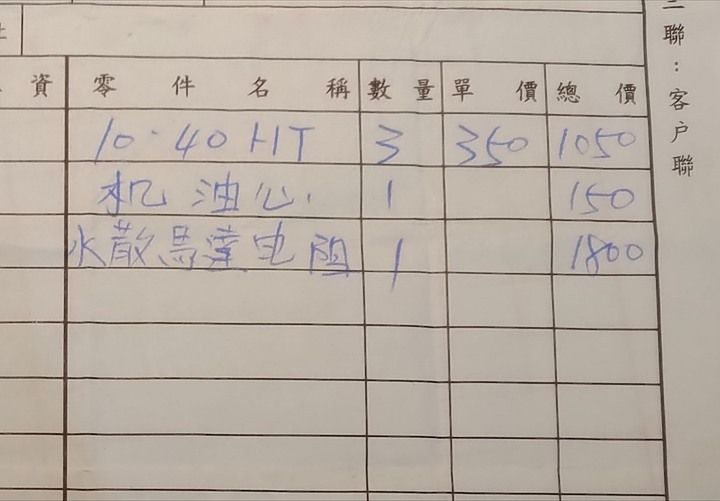 三聯：客戶聯
資 零件名稱 數量 單價 總價
10-40 HT 3 350 1050
机油心 1 150
水散馬達电阻 1 1800